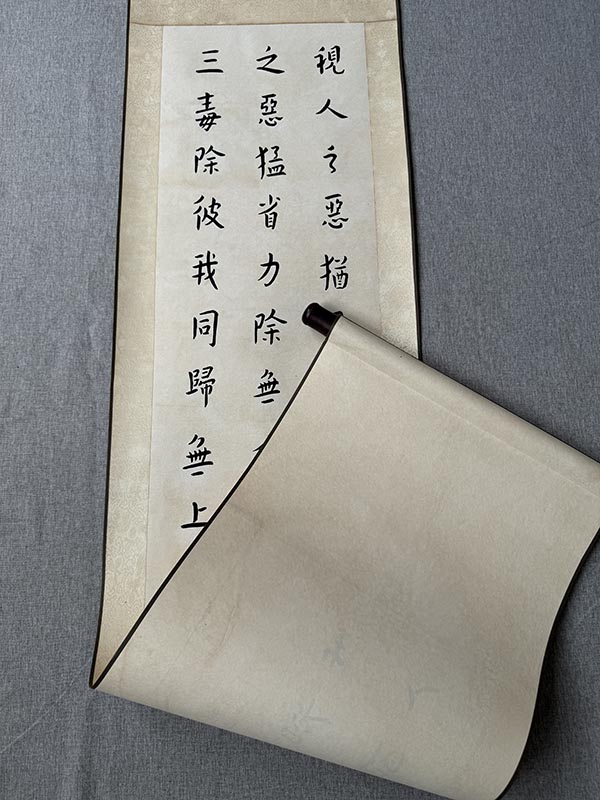 視人之惡猶
之惡猛省力除無
三毒除彼我同歸無上